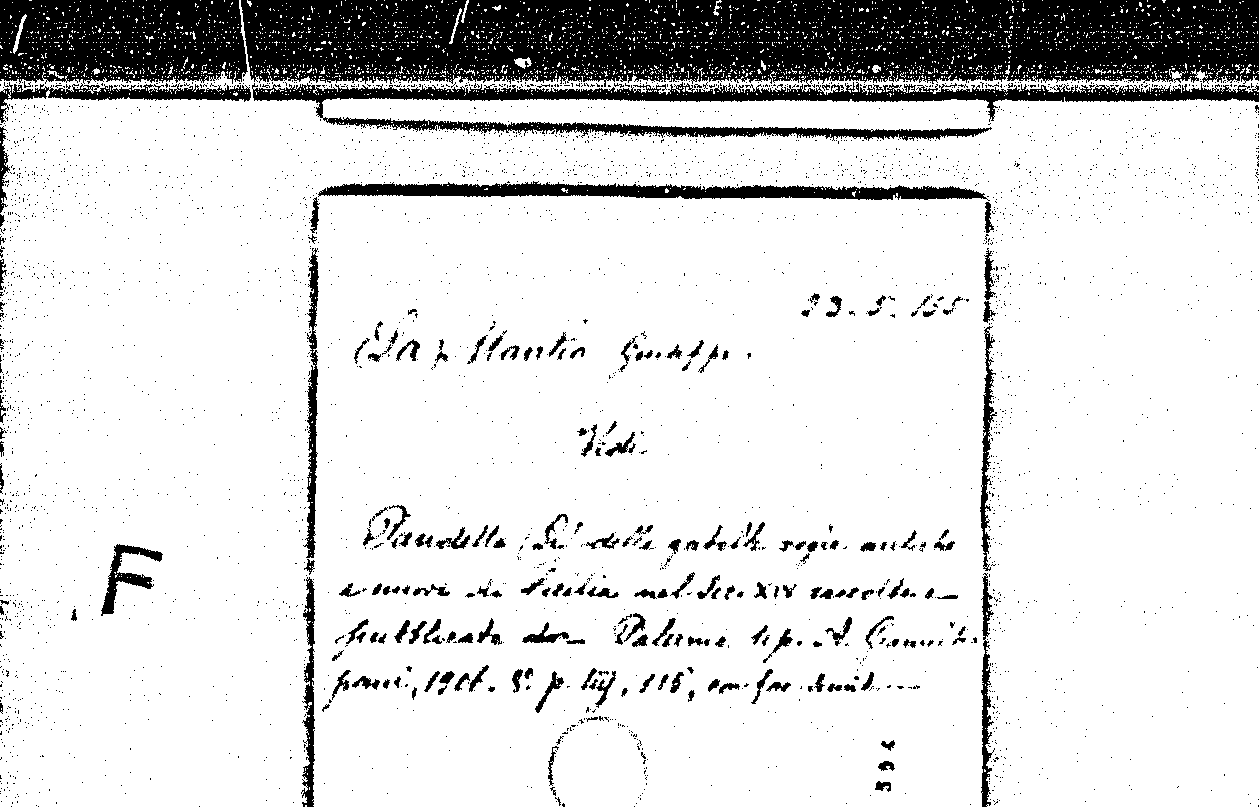 23.5.165
(La) Mantia Giuseppe.
Vedi
Pandette (Le) delle gabelle regie antiche
e nuove di Sicilia nel Sec. XIV raccolte e
pubblicate da Palermo tip. A. Giannitra-
pani, 1906. 8° p. 115, con fac simile
F
394